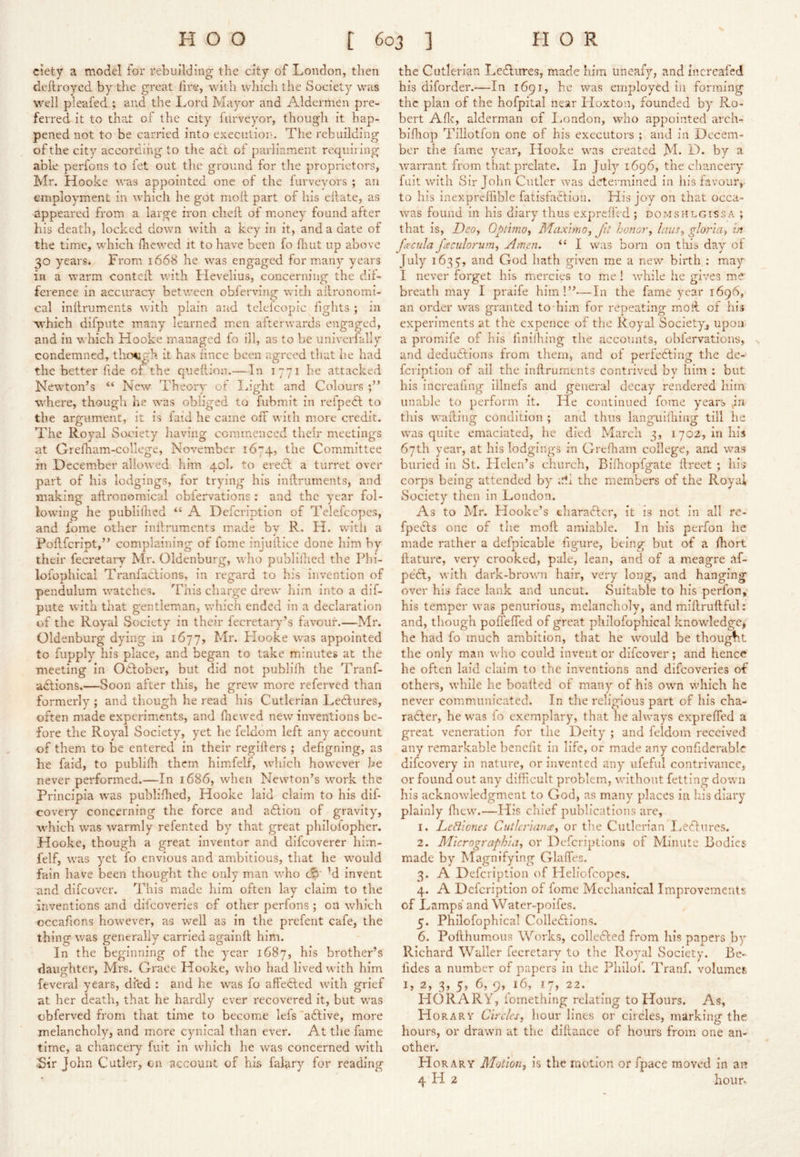 HOO [ 603 ] HOR
ciety a model for rebuilding the city of London, then
deſtroyed by the great fire, with which the Society was
well pleaſed; and the Lord Mayor and Aldermen pre-
ferred it to that of the city ſurveyor, though it hap-
pened not to be carried into execution. The rebuilding
of the city according to the act of parliament requiring
able perſons to ſet out the ground for the proprietors,
Mr. Hooke was appointed one of the ſurveyors; an
employment in which he got moſt part of his eſtate, as
appeared from a large iron cheſt of money found after
his death, locked down with a key in it, and a date of
the time, which ſhewed it to have been ſo ſhut up above
30 years. From 1668 he was engaged for many years
in a warm conteſt with Hevelius, concerning the dif-
ference in accuracy between obſerving with aſtronomi-
cal inſtruments with plain and teleſcopic ſights; in
which diſpute many learned men afterwards engaged,
and in which Hooke managed ſo ill, as to be univerſally
condemned, though it has ſince been agreed that he had
the better ſide of the queſtion.—In 1771 he attacked
Newton's “ New Theory of Light and Colours;”
where, though he was obliged to ſubmit in reſpect to
the argument, it is ſaid he came off with more credit.
The Royal Society having commenced their meetings
at Greſham-college, November 1674, the Committee
in December allowed him 40l. to erect a turret over
part of his lodgings, for trying his inſtruments, and
making aſtronomical obſervations: and the year fol-
lowing he publiſhed “ A Deſcription of Teleſcopes,
and ſome other inſtruments made by R. H. with a
Poſtſcript,” complaining of ſome injuſtice done him by
their ſecretary Mr. Oldenburg, who publiſhed the Phi-
loſophical Tranſactions, in regard to his invention of
pendulum watches. This charge drew him into a diſ-
pute with that gentleman, which ended in a declaration
of the Royal Society in their ſecretary's favour.—Mr.
Oldenburg dying in 1677, Mr. Hooke was appointed
to ſupply his place, and began to take minutes at the
meeting in October, but did not publiſh the Tranſ-
actions.—Soon after this, he grew more reſerved than
formerly; and though he read his Cutlerian Lectures,
often made experiments, and ſhewed new inventions be-
fore the Royal Society, yet he ſeldom left any account
of them to be entered in their regiſters; deſigning, as
he ſaid, to publiſh them himſelf, which however he
never performed.—In 1686, when Newton's work the
Principia was publiſhed, Hooke laid claim to his diſ-
covery concerning the force and action of gravity,
which was warmly reſented by that great philoſopher.
Hooke, though a great inventor and diſcoverer him-
ſelf, was yet ſo envious and ambitious, that he would
fain have been thought the only man who 'd invent
and diſcover. This made him often lay claim to the
inventions and diſcoveries of other perſons; on which
occaſions however, as well as in the preſent caſe, the
thing was generally carried againſt him.
In the beginning of the year 1687, his brother's
daughter, Mrs. Grace Hooke, who had lived with him
ſeveral years, died: and he was ſo affected with grief
at her death, that he hardly ever recovered it, but was
obſerved from that time to become leſs active, more
melancholy, and more cynical than ever. At the ſame
time, a chancery ſuit in which he was concerned with
Sir John Cutler, on account of his ſalary for reading
the Cutlerian Lectures, made him uneaſy, and increaſed
his diſorder.—In 1691, he was employed in forming
the plan of the hoſpital near Hoxton, founded by Ro-
bert Aſk, alderman of London, who appointed arch-
biſhop Tillotſon one of his executors; and in Decem-
ber the ſame year, Hooke was created M. D. by a
warrant from that prelate. In July 1696, the chancery
ſuit with Sir John Cutler was determined in his favour,
to his inexpreſſible ſatisfaction. His joy on that occa-
was found in his diary thus expreſſed; DOMSHLGISSA;
that is, Deo, Optimo, Maximo, ſit honor, laus, gloria, in
ſæcula ſæculorum, Amen. “ I was born on this day of
July 1635, and God hath given me a new birth: may
I never forget his mercies to me! while he gives me
breath may I praiſe him!”—In the ſame year 1696,
an order was granted to him for repeating moſt of his
experiments at the expence of the Royal Society, upon
a promiſe of his finiſhing the accounts, obſervations,
and deductions from them, and of perfecting the de-
ſcription of all the inſtruments contrived by him: but
his increaſing illneſs and general decay rendered him
unable to perform it. He continued ſome years in
this waſting condition; and thus languiſhing till he
was quite emaciated, he died March 3, 1702, in his
67th year, at his lodgings in Greſham college, and was
buried in St. Helen's church, Biſhopſgate ſtreet; his
corps being attended by all the members of the Royal
Society then in London.
As to Mr. Hooke's character, it is not in all re-
ſpects one of the moſt amiable. In his perſon he
made rather a deſpicable figure, being but of a ſhort
ſtature, very crooked, pale, lean, and of a meagre aſ-
pect, with dark-brown hair, very long, and hanging
over his face lank and uncut. Suitable to his perſon,
his temper was penurious, melancholy, and miſtruſtful:
and, though poſſeſſed of great philoſophical knowledge,
he had ſo much ambition, that he would be thought
the only man who could invent or diſcover; and hence
he often laid claim to the inventions and diſcoveries of
others, while he boaſted of many of his own which he
never communicated. In the religious part of his cha-
racter, he was ſo exemplary, that he always expreſſed a
great veneration for the Deity; and ſeldom received
any remarkable benefit in life, or made any conſiderable
diſcovery in nature, or invented any uſeful contrivance,
or found out any difficult problem, without ſetting down
his acknowledgment to God, as many places in his diary
plainly ſhew.—His chief publications are,
1. Lectiones Cutlerianæ, or the Cutlerian Lectures.
2. Micrographia, or Deſcriptions of Minute Bodies
made by Magnifying Glaſſes.
3. A Deſcription of Helioſcopes.
4. A Deſcription of ſome Mechanical Improvements
of Lamps and Water-poiſes.
5. Philoſophical Collections.
6. Poſthumous Works, collected from his papers by
Richard Waller ſecretary to the Royal Society. Be-
ſides a number of papers in the Philoſ. Tranſ. volumes
1, 2, 3, 5, 6, 9, 16, 17, 22.
HORARY, ſomething relating to Hours. As,
HORARY Circles, hour lines or circles, marking the
hours, or drawn at the diſtance of hours from one an-
other.
HORARY Motion, is the motion or ſpace moved in an
4 H 2 hour.